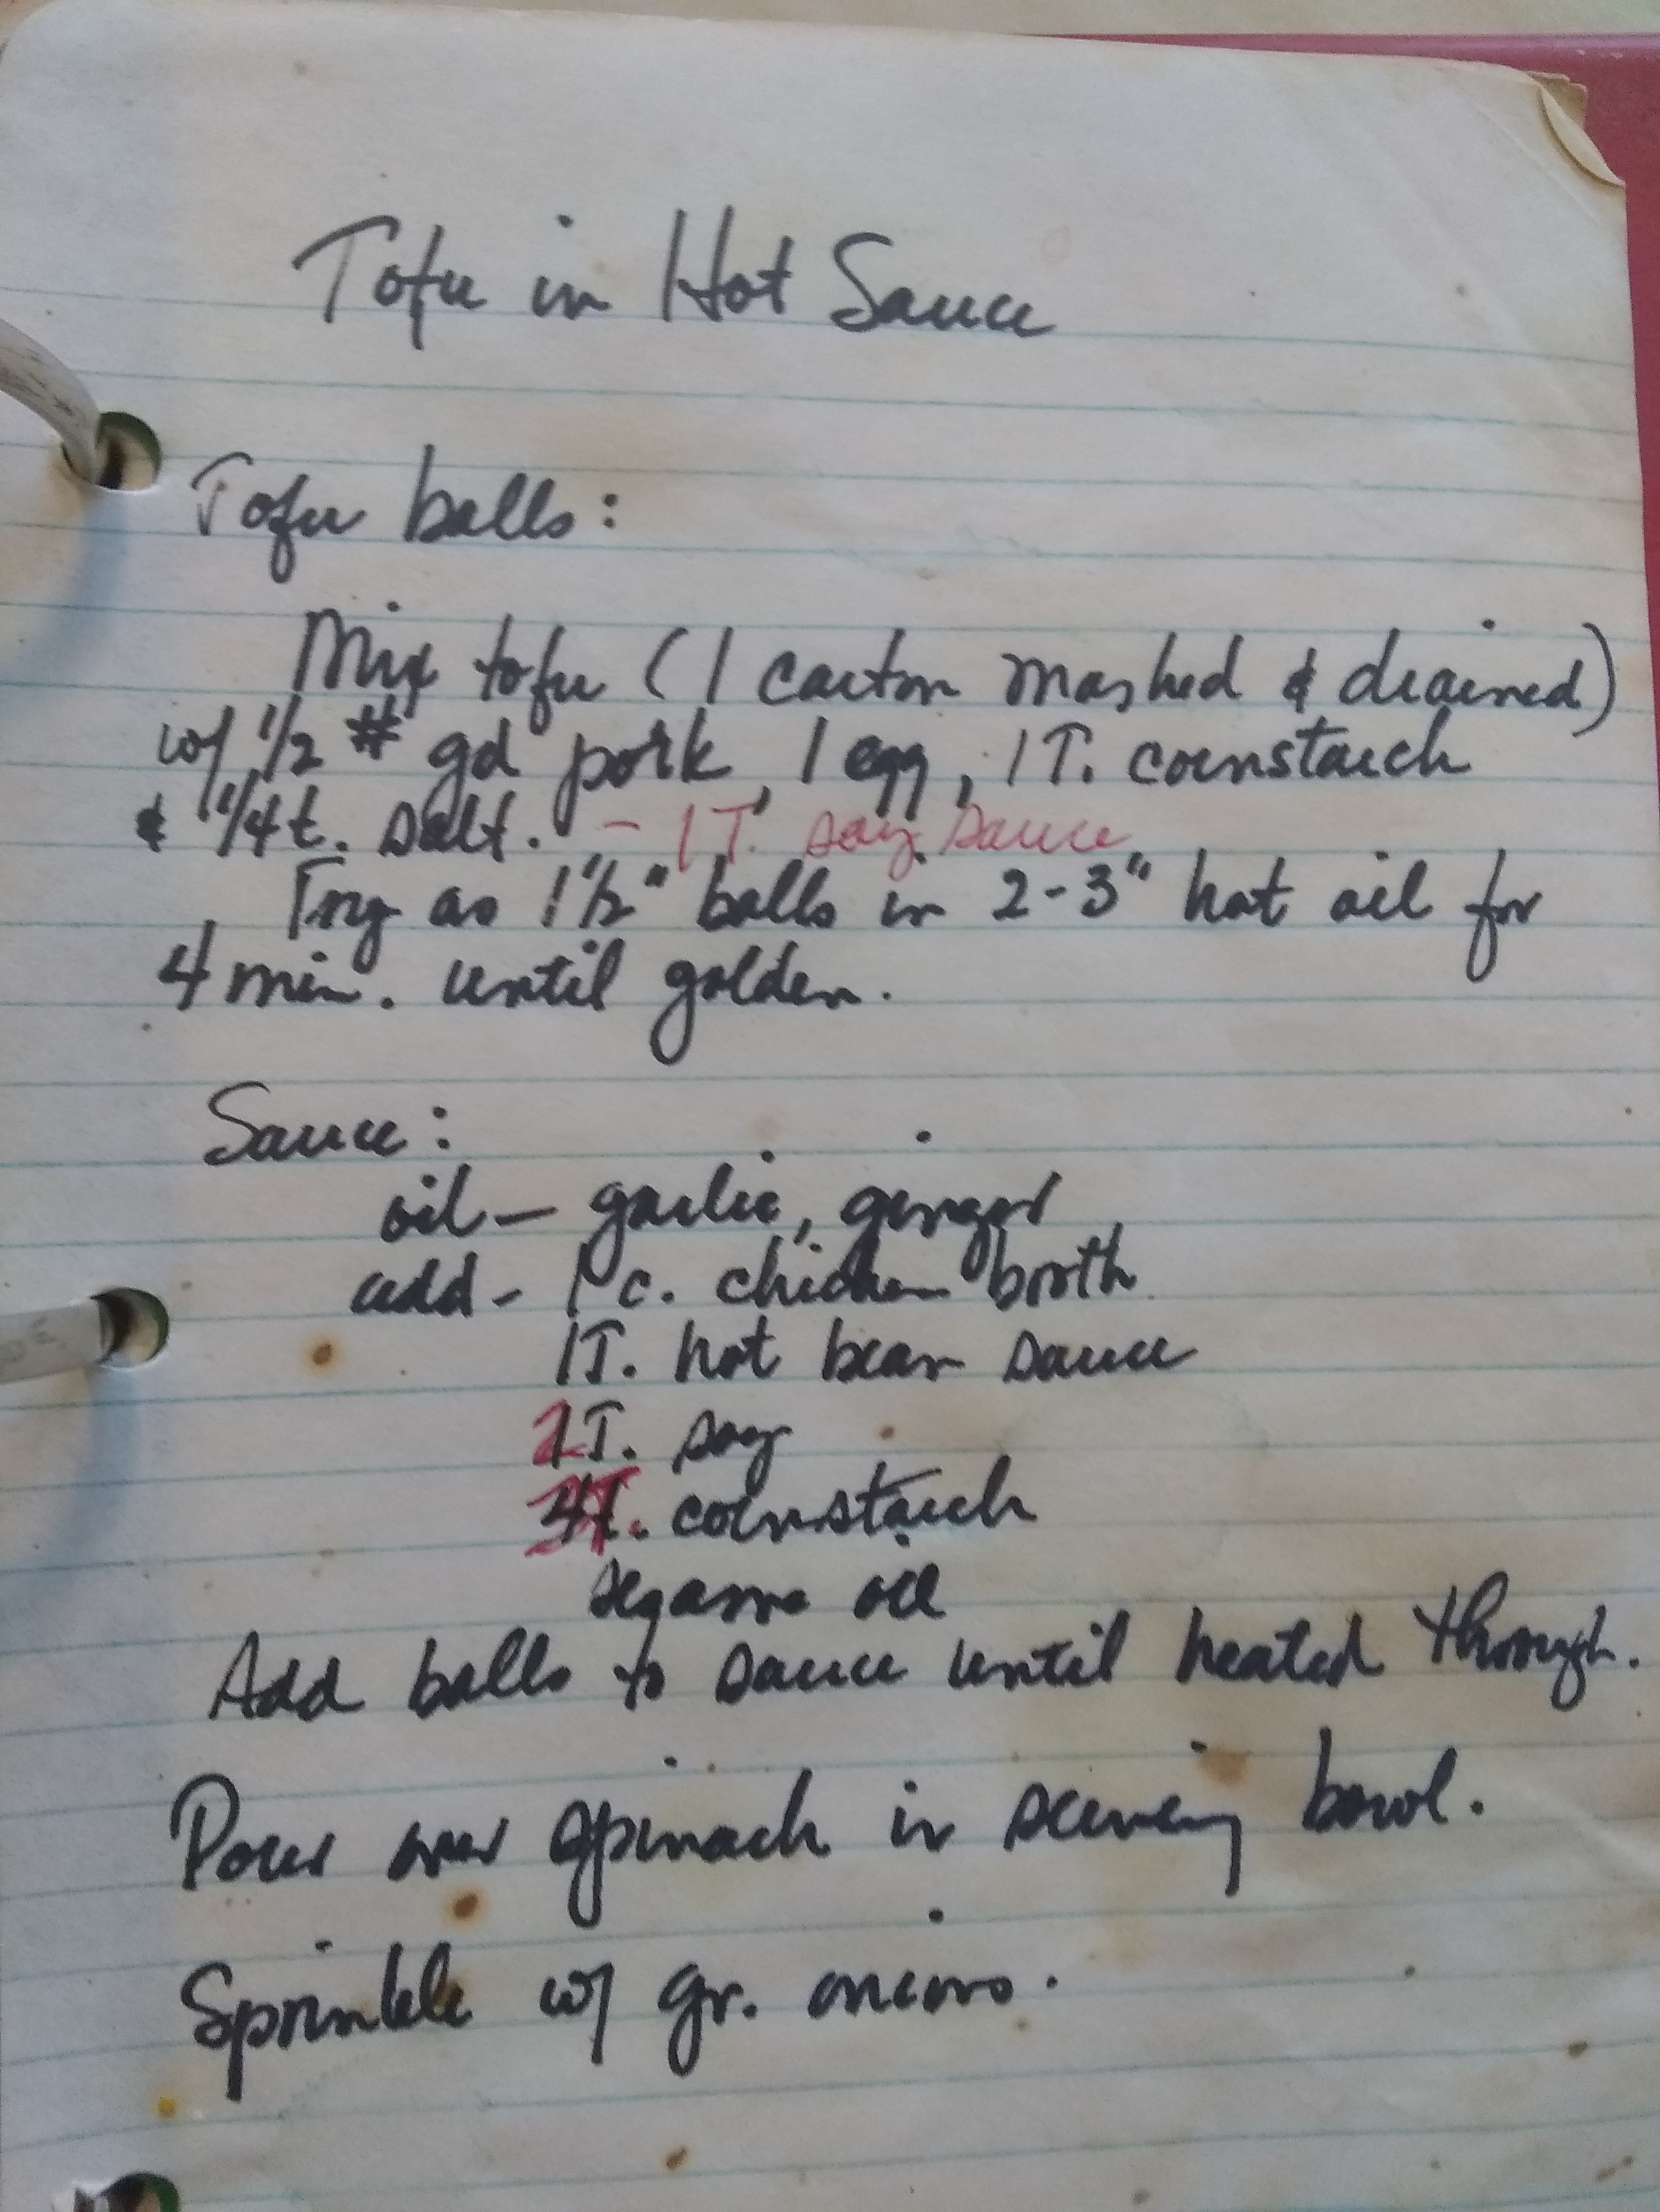 Tofu in Hot Sauce
Tofu balls:
Mix tofu (1 carton mashed & drained)
w/ 1/2 # gd pork, 1 egg, 1T. cornstarch
& 1/4 t. salt. - 1T. soy sauce
Fry as 1 1/2" balls in 2-3" hot oil for
4 min. until golden.
Sauce:
oil - garlic, ginger
add - 1 c. chicken broth
1T. hot bean sauce
2T. soy
cornstarch
sesame oil
Add balls to sauce until heated through.
Pour over spinach in serving bowl.
Sprinkle w/ gr. onions.